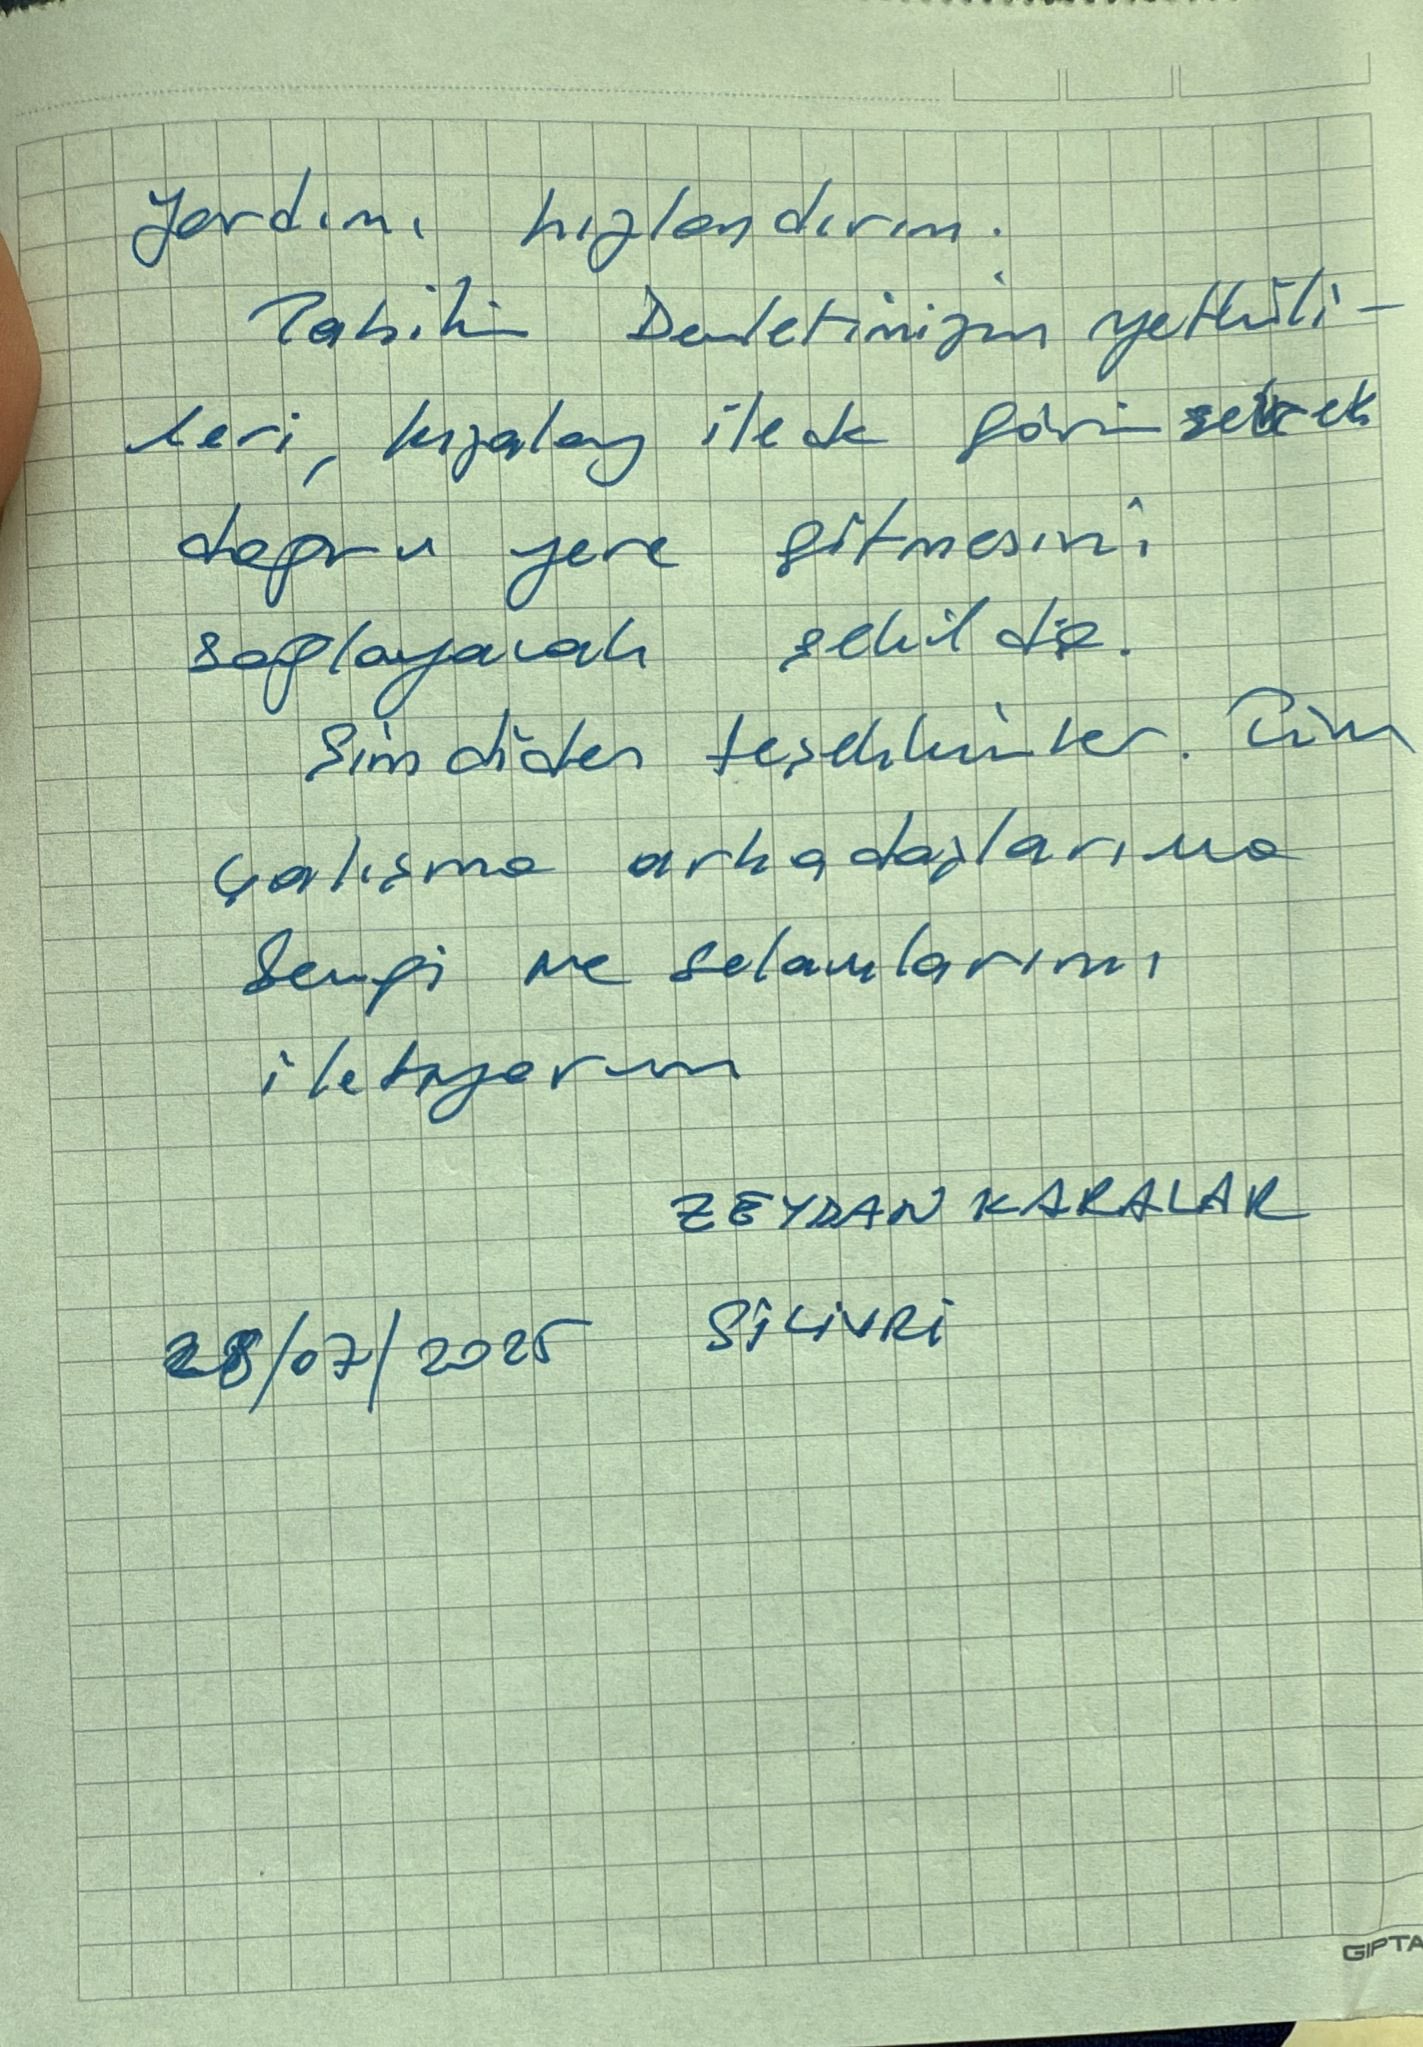 yardımı hızlandırın.
Tabiki Devletimizin yetkili-
leri, kızalay ile de görüşerek
doğru yere gitmesini
sağlayacak şekilde.
Şimdiden teşekkürler. Tüm
çalışma arkadaşlarıma
Sevgi ve selamlarımı
iletiyorum
ZEYDAN KARALAR
28/07/2025 SİLİVRİ
GIPTA